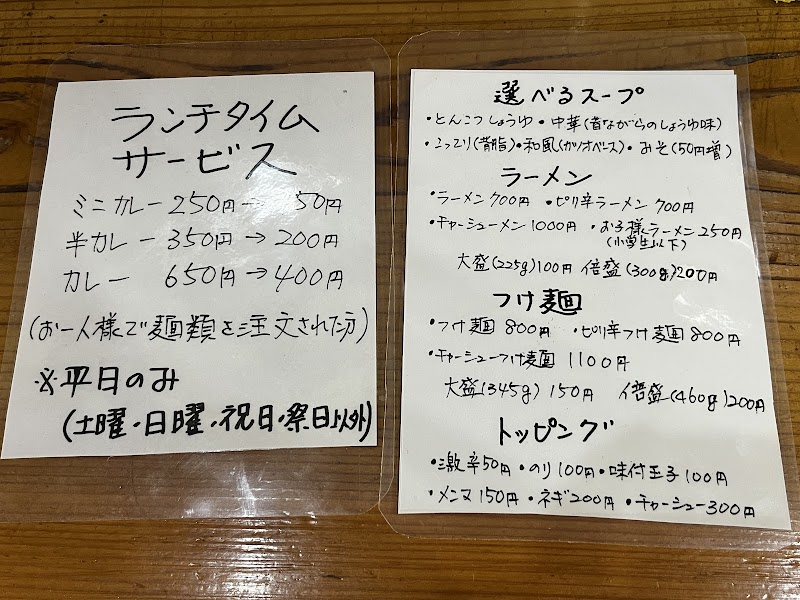 ランチタイム
サービス
ミニカレー 250円→ 50円
半カレー 350円→200円
カレー 650円→400円
(お一人様で麺類を注文された方)
※平日のみ
(土曜・日曜・祝日・祭日以外)
選べるスープ
・とんこつしょうゆ・中華(昔ながらのしょうゆ味)
・こってり(背脂)・和風(カツオベース)・みそ(50円増)
ラーメン
・ラーメン700円 ・ピリ辛ラーメン700円
・チャーシューメン1000円 ・お子様ラーメン250円
(小学生以下)
大盛(225g)100円 倍盛(300g)200円
つけ麺
・つけ麺800円 ・ピリ辛つけ麺800円
・チャーシューつけ麺1100円
大盛(345g)150円 倍盛(460g)200円
トッピング
・激辛50円・のり100円・味付玉子100円
・メンマ150円・ネギ200円・チャーシュー300円